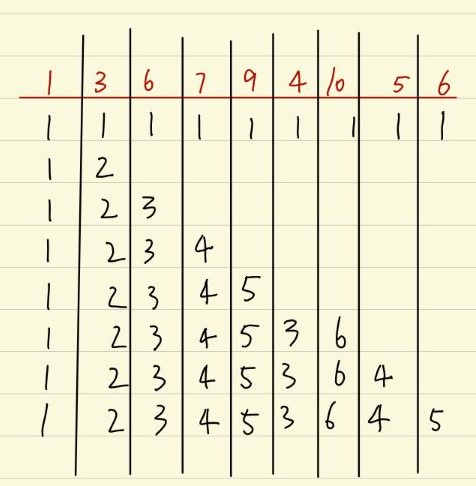 1 3 6 7 9 4 10 5 6
1 1 1 1 1 1 1 1 1
1 2
1 2 3
1 2 3 4
1 2 3 4 5
1 2 3 4 5 3 6
1 2 3 4 5 3 6 4
1 2 3 4 5 3 6 4 5